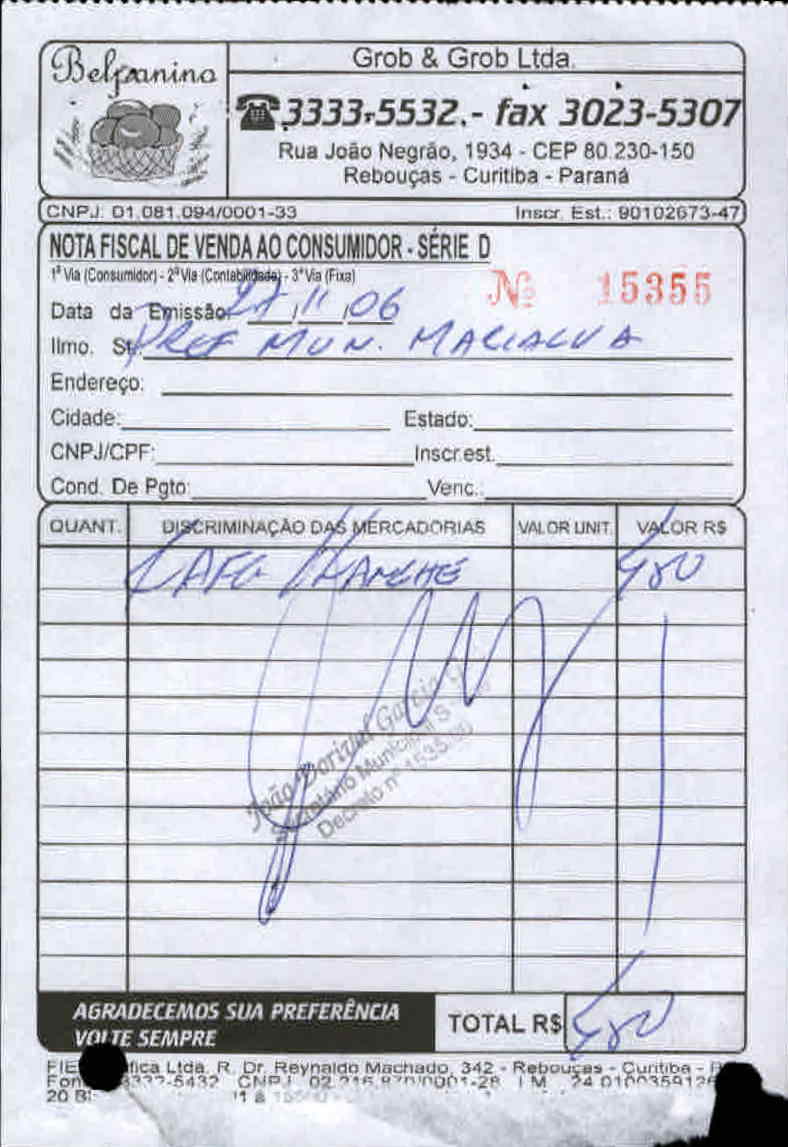 Belpanino
Grob & Grob Ltda.
☎ 3333-5532 - fax 3023-5307
Rua João Negrão, 1934 - CEP 80.230-150
Rebouças - Curitiba - Paraná
CNPJ: 01.081.094/0001-33 Inscr. Est.: 90102673-47
NOTA FISCAL DE VENDA AO CONSUMIDOR - SÉRIE D
1ª Via (Consumidor) - 2ª Via (Contabilidade) - 3ª Via (Fixa)
Nº 15355
Data da Emissão 27/11/06
Ilmo. Sr. PREF MUN. MARIALVA
Endereço:
Cidade: Estado:
CNPJ/CPF: Inscr.est.
Cond. De Pgto: Venc.:
QUANT. DISCRIMINAÇÃO DAS MERCADORIAS VALOR UNIT. VALOR R$
CAFE LANCHE 480
João Dorival Garcia
Secretário Municipal
Decreto nº 1535/00
AGRADECEMOS SUA PREFERÊNCIA
VOLTE SEMPRE
TOTAL R$ 480
Ltda. R. Dr. Reynaldo Machado, 342 - Rebouças - Curitiba -
-5432 CNPJ 02.216.870/0001-28 I.M.
20